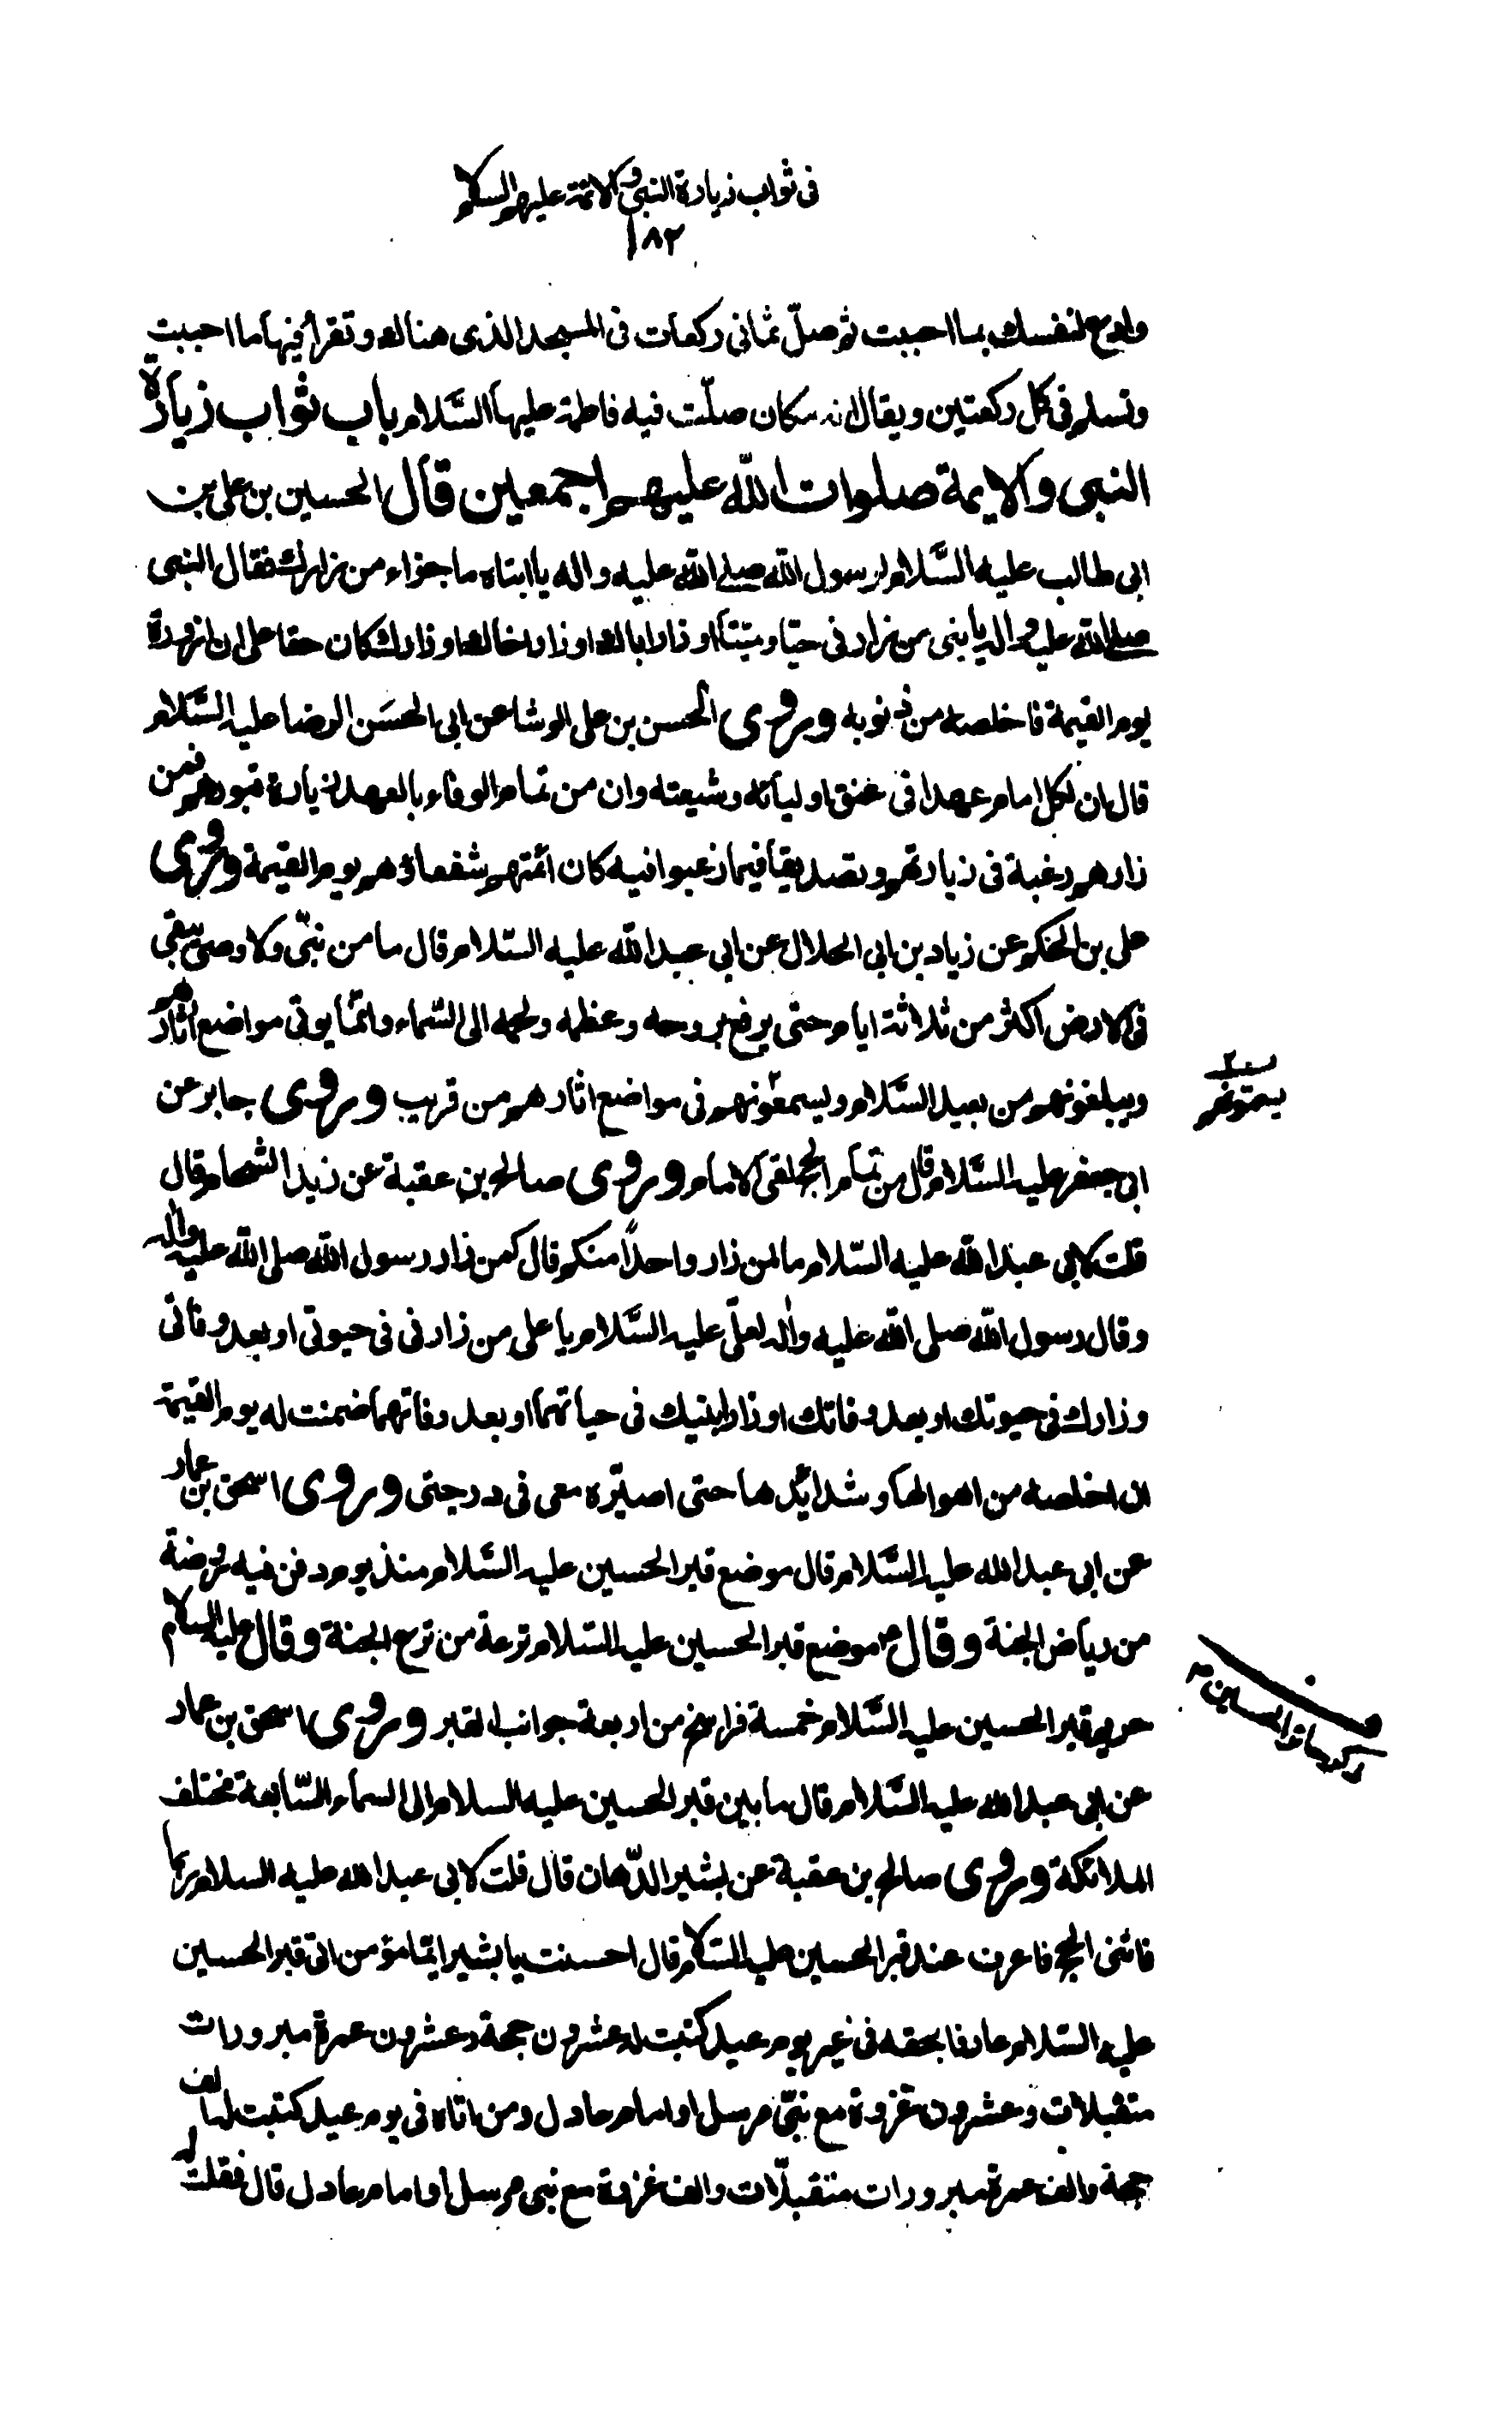 في ثواب زيارة النبي والائمة عليهم السلام
١٨٢
وادع لنفسك بما احببت ثم صلّ ثماني ركعات في المسجد الذي هناك وتقرأ فيها ما احببت
وتسلم في كل ركعتين ويقال انه مكان صلّت فيه فاطمة عليها السَّلام باب ثواب زيارة
النبي والايمة صلوات اللّه عليهم اجمعين قال الحسين بن علي بن
ابي طالب عليه السَّلام لرسول اللّه صلى اللّه عليه واله يا ابتاه ما جزاء من زارك فقال النبي
صلى اللّه عليه واله يا بني من زارني حيّا وميّتا او زار اباك او زار اخاك او زارك كان حقا علي ان ازوره
يوم القيمة فاخلصه من ذنوبه وروى الحسن بن علي الوشا عن ابي الحسَن الرضا عليه السَّلام
قال ان لكل امام عهدا في عنق اوليائه وشيعته وان من تمام الوفاء بالعهد زيارة قبورهم فمن
زارهم رغبة في زيارتهم وتصديقا فيما رغبوا فيه كان ائمتهم شفعاؤهم يوم القيمة وروى
علي بن الحكم عن زياد بن ابي الحلال عن ابي عبد اللّه عليه السّلام قال ما من نبيّ ولا وصي يبقى
في الارض اكثر من ثلاثة ايام حتى يرفع بروحه وعظمه ولحمه الى السّماء وانّما يوتى مواضع آثارهم
ويبلغونهم من بعيد السَّلام ويسمعونهم في مواضع اثارهم من قريب وروى جابر عن
يسمعونهم
ابي جعفر عليه السَّلام قال من تمام الحج لقى الامام وروى صالح بن عقبة عن زيد الشحام قال
قلت لابي عبد اللّه عليه السّلام ما لمن زار واحدًا منكم قال كمن زار رسول اللّه صلى اللّه عليه واله
وقال رسول اللّه صلى اللّه عليه واله لعليّ عليه السَّلام يا علي من زارني في حيوتي او بعد وفاتي
وزارك في حيوتك او بعد وفاتك او زار ابنيك في حياتهما او بعد وفاتهما ضمنت له يوم القيمة
ان اخلصه من اهوالها وشدائدها حتى اصيّره معي في درجتي وروى اسحق بن عمار
عن ابي عبد الله عليه السَّلام قال موضع قبر الحسين عليه السَّلام منذ يوم دفن فيه روضة
من رياض الجنة وقال ع موضع قبر الحسين عليه السّلام ترعة من ترع الجنة وقال عليه السلام
حريم قبر الحسين عليه السَّلام خمسة فراسخ من اربعة جوانب القبر وروى اسحق بن عمار
عن ابي عبد الله عليه السَّلام قال ما بين قبر الحسين عليه السلام الى السماء السّابعة مختلف
الملائكة وروى صالح بن عقبة عن بشير الدّهان قال قلت لابي عبد الله عليه السلام ربما
فاتني الحج فاعرف عند قبر الحسين عليه السّلام قال احسنت يا بشير ايّما مؤمن اتى قبر الحسين
عليه السّلام عارفا بحقه في غير يوم عيد كتبت له عشرون حجة وعشرون عمرة مبرورات
متقبلات وعشرون غزوة مع نبيّ مرسل او امام عادل ومن اتاه في يوم عيد كتبت له الف
حجة والف عمرة مبرورات متقبلات والف غزوة مع نبي مرسل او امام عادل قال فقلت له